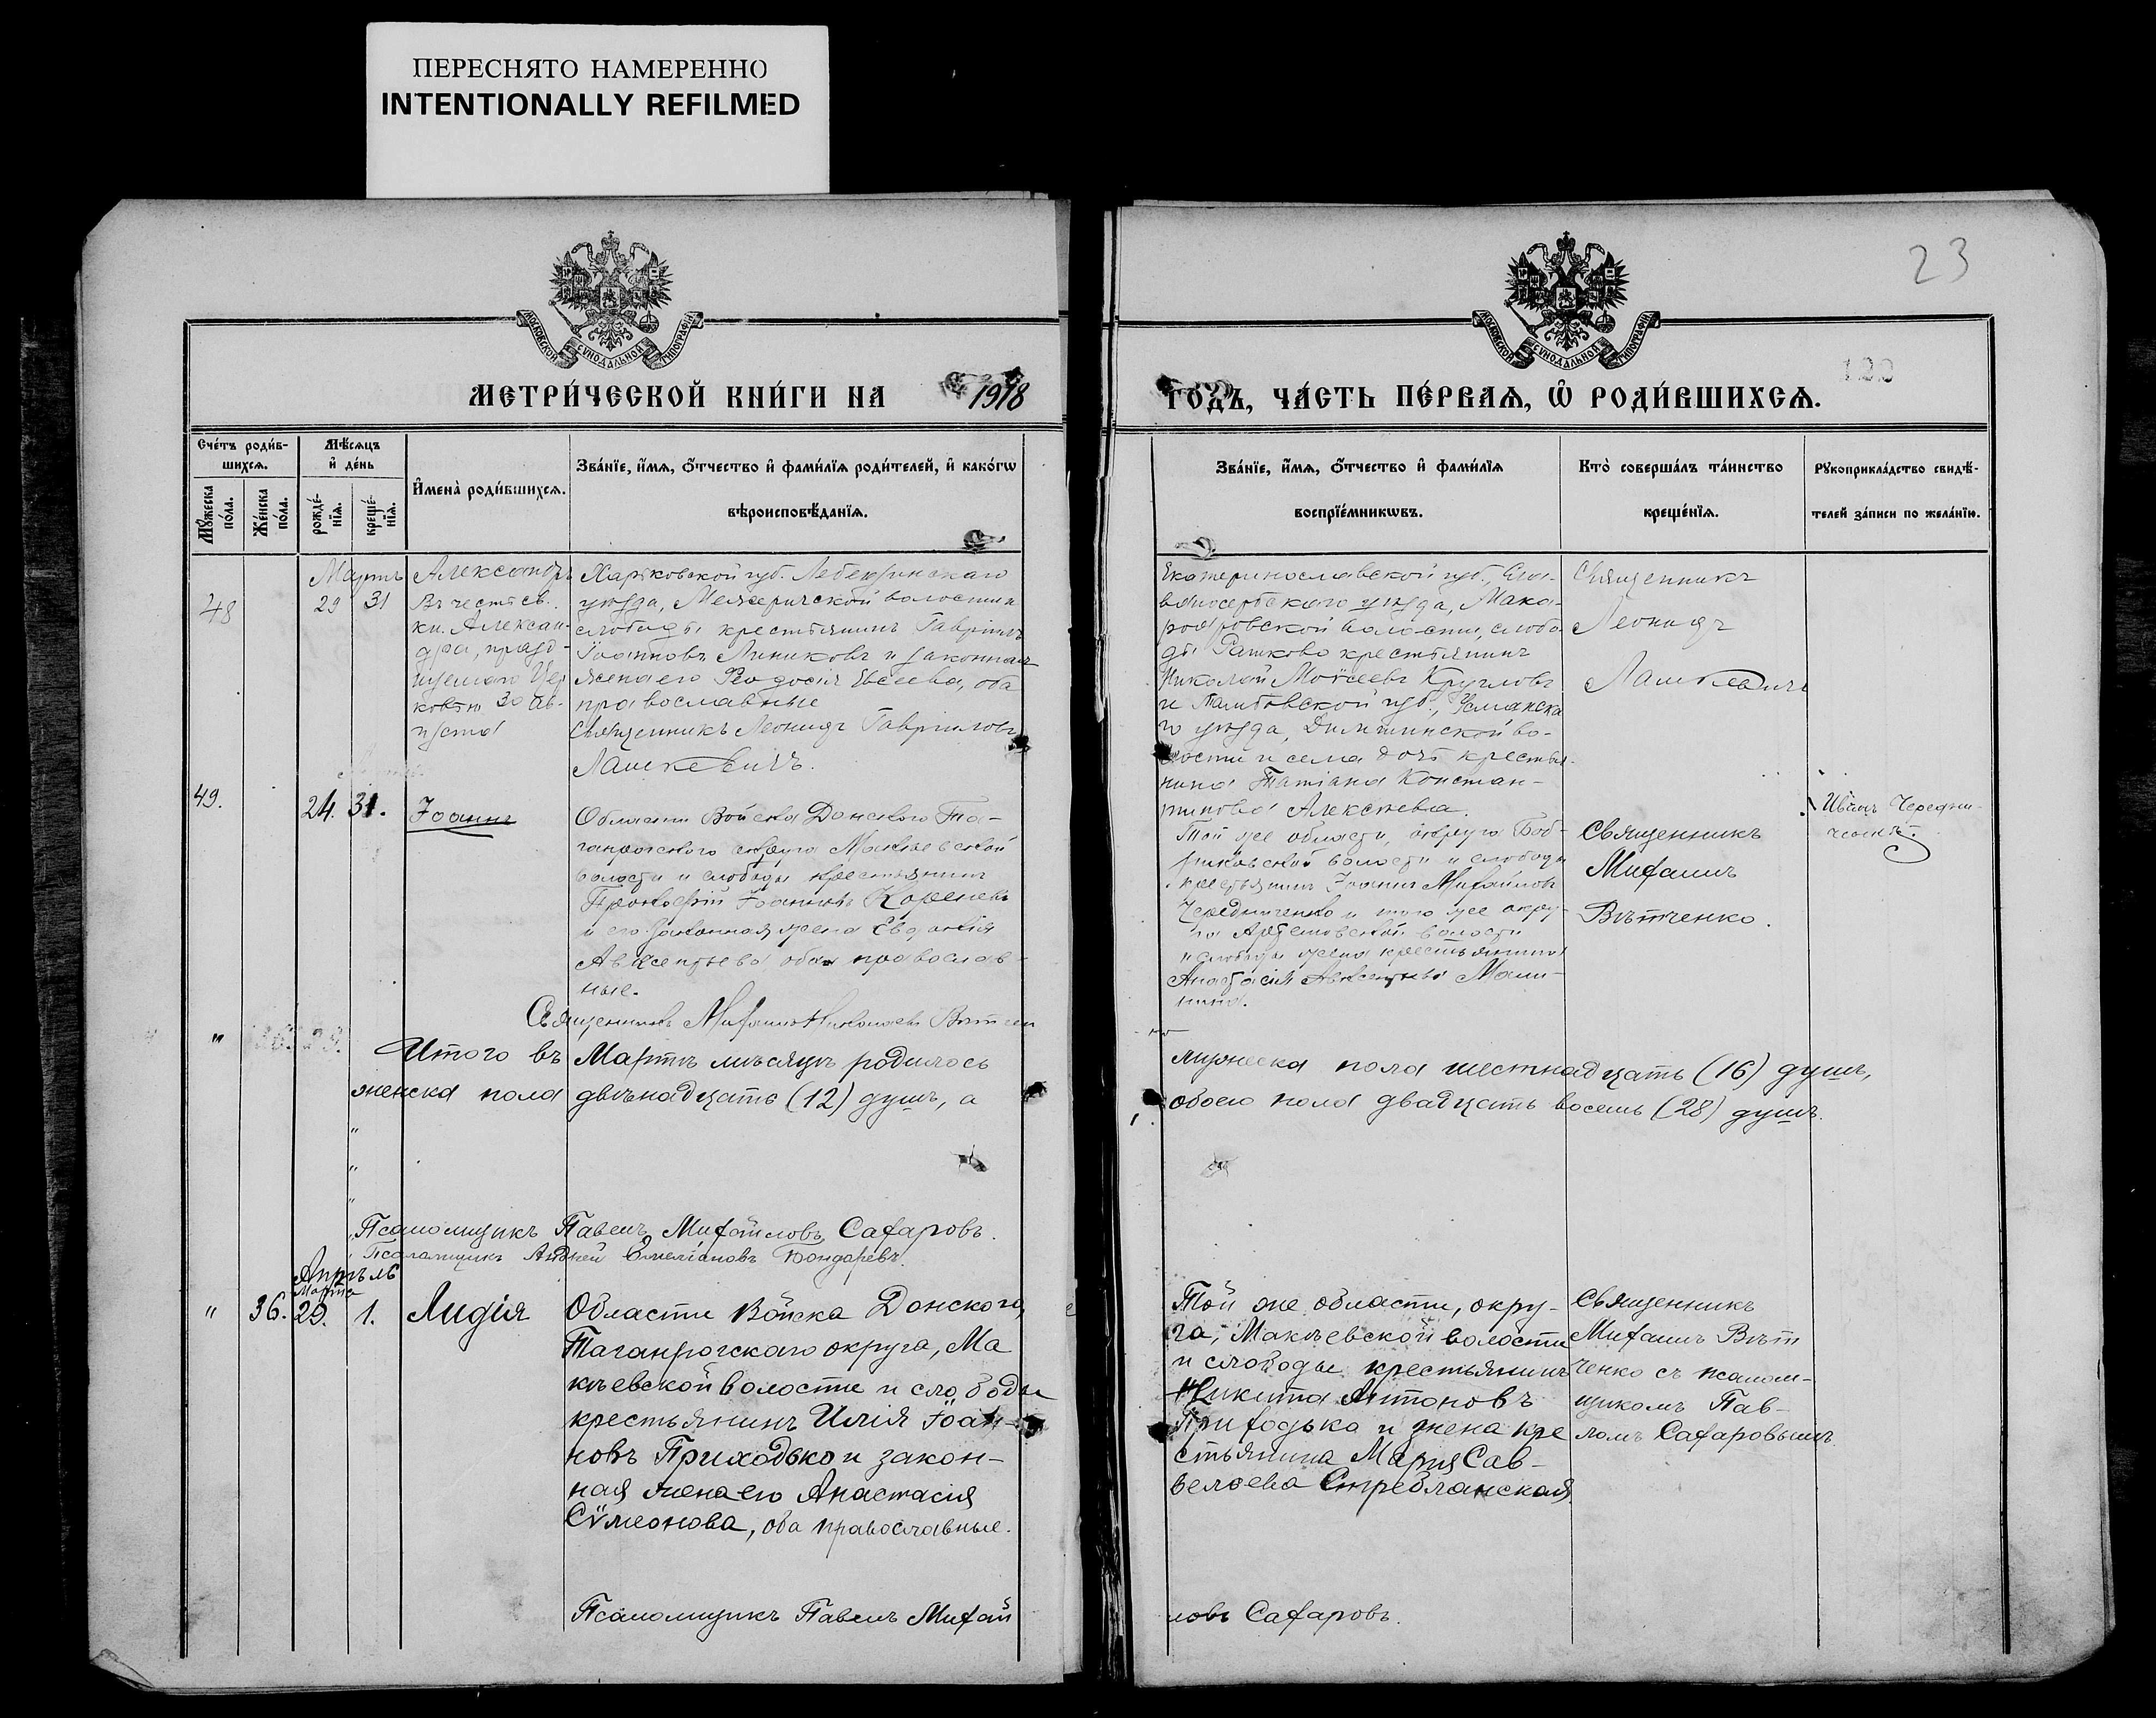 ПЕРЕСНЯТО НАМЕРЕННО
INTENTIONALLY REFILMED
23
МОСКОВСКОЙ СУНОДАЛЬНОЙ ТИПОГРАФІИ
МОСКОВСКОЙ СУНОДАЛЬНОЙ ТИПОГРАФІИ
МЕТРИ́ЧЕСКОЙ КНИ́ГИ НА 1918
ГОДЪ, ЧА́СТЬ ПЕ́РВАѦ, Ѡ РОДИ́ВШИХСѦ.
Сче́тъ роди́в-
шихсѧ.
Мꙋ́жеска по́ла.
Же́нска по́ла.
Мѣ́сѧцъ
и҆ де́нь
рожде́-
нїѧ.
креще́-
нїѧ.
И҆мена̀ роди́вшихсѧ.
Зва́нїе, и҆́мѧ, ѻ҆́тчество и҆ фами́лїѧ роди́телей, и҆ како́гѡ
вѣроисповѣ́данїѧ.
Зва́нїе, и҆́мѧ, ѻ҆́тчество и҆ фами́лїѧ
воспрїе́мникѡвъ.
Кто̀ соверша́лъ та́инство
креще́нїѧ.
Рꙋкоприкла́дство свидѣ́-
телей за́писи по жела́нїю.
48
Мартъ
29 31
Александръ
Въ честь св.
кн. Алексан-
дра, празд-
нуемаго Цер
ковью 30 Ав-
густа
Харьковской губ. Лебединскаго
уѣзда, Межеричской волости и
слободы крестьянинъ Гавріилъ
Іоанновъ Линиковъ и законная
жена его Ѳеодосія Евсеева, оба
православные
Священникъ Леонидъ Гавриловъ
Лашкевичъ.
Екатеринославской губ., Сла-
вяносербскаго уѣзда, Мака-
ровской волости, слобо-
ды Рашково крестьянинъ
Николай Моѵсеевъ Кругловъ
и Тамбовской губ., Усманска
го уѣзда, во-
лости и села дочь крестья-
нина Татіана Констан-
тинова Алексѣева.
Священникъ
Леонидъ
Лашкевичъ
49.
24. 31.
Іоаннъ
Области Войска Донского Та-
ганрогскаго округа Макѣевской
волости и слободы крестьянинъ
Прокофій Іоанновъ Кореневъ
и его законная жена Евдокія
Авксентьева оба православ-
ные.
Священникъ Михаилъ Николаевъ Вѣтчен
Той же области, округа Боб-
риковской волости и слободы
крестьянинъ Іоаннъ Михайловъ
Чередниченко и того же окру-
га Артемовской волости
и слободы жена крестьянина
Анастасія Авксентьева Мали-
нина.
Священникъ
Михаилъ
Вѣтченко.
Иванъ Чередни-
ченко.
Итого въ Мартѣ мѣсяцѣ родилось
женска пола двѣнадцать (12) душъ, а
мужеска пола шестнадцать (16) душъ,
обоего пола двадцать восемь (28) душъ.
Псаломщикъ Павелъ Михайловъ Сафаровъ.
Псаломщикъ Андрей Емеліановъ Бондаревъ.
Апрѣль
Марта
" 36. 29. 1. Лидія
Области Войска Донского,
Таганрогскаго округа, Ма
кѣевской волости и слободы
крестьянинъ Илія Іоан-
новъ Приходько и закон-
ная жена его Анастасія
Сѵмеонова, оба православные.
Псаломщикъ Павелъ Михай
Той же области, окру-
га, Макѣевской волости
и слободы крестьянинъ
Никита Антоновъ
Приходько и жена кре
стьянина Марія Сав-
вельева Стреблянская
ловъ Сафаровъ.
Священникъ
Михаилъ Вѣт
ченко съ псалом-
щикомъ Пав-
ломъ Сафаровымъ.